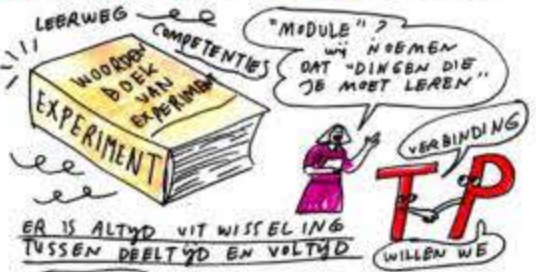 LEERWEG
COMPETENTIES
WOORDEN
BOEK
VAN
EXPERIMENT
EXPERIMENT
"MODULE"?
WIJ NOEMEN
DAT "DINGEN DIE
JE MOET LEREN"
VERBINDING
T P
WILLEN WE
ER IS ALTIJD UITWISSELING
TUSSEN DEELTIJD EN VOLTIJD